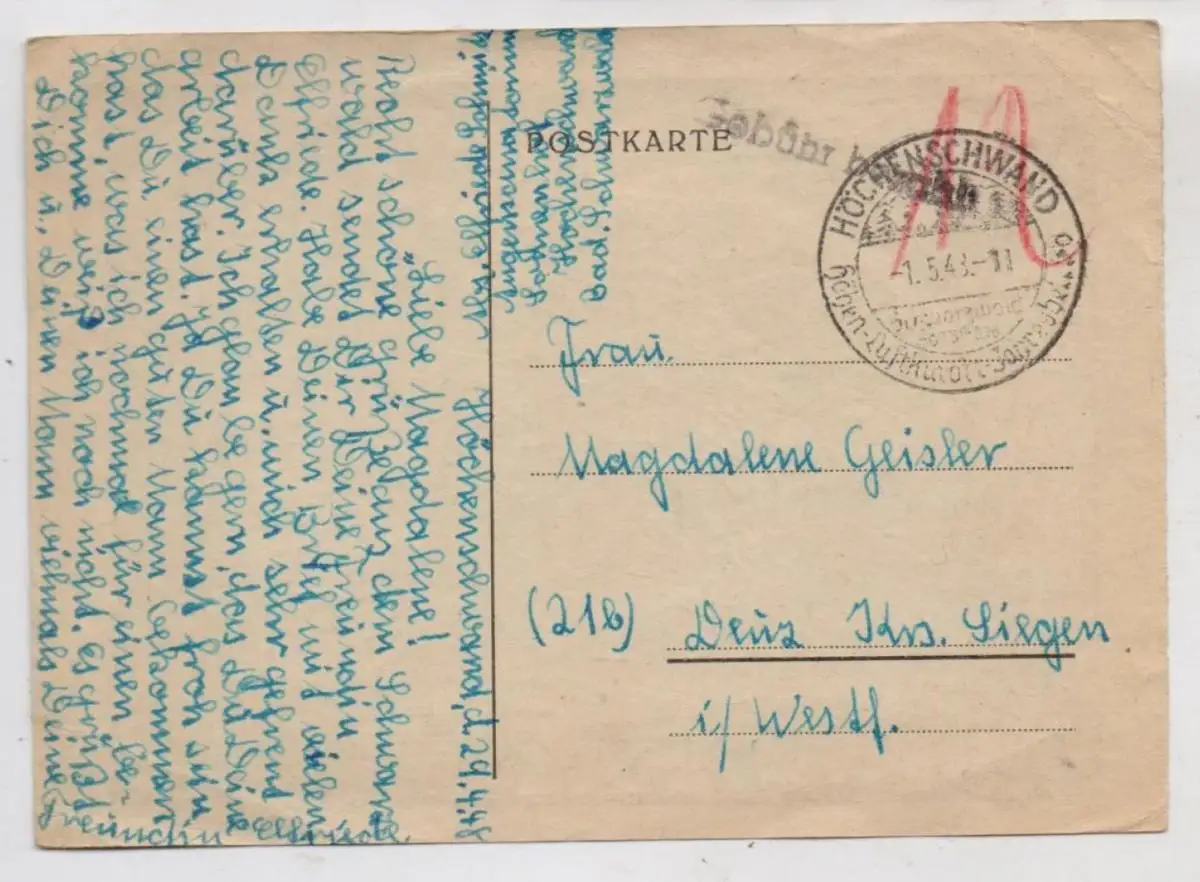 POSTKARTE
Gebühr b
HÖCHENSCHWAND
-1.5.48.-11
12
Abs. Elfriede Schmid
Augustanerheim
Sonnenhof
Höchenschwand
Bad. Schwarzwald
Frau
Magdalene Geisler
(21b) Deuz Krs. Siegen
i/Westf.
Höchenschwand, d. 29.4.48
"Liebe Magdalene!
Recht schöne Grüße aus dem Schwarz
wald sendet Dir Deine Freundin
Elfriede. Habe Deinen Brief mit vielen
Dank erhalten u. mich sehr gefreut
darüber. Ich glaube gern, das Du Deine
arbeit hast. Ja Du kannst froh sein
das Du einen guten Mann bekommen
hast, was ich nochmal für einen be-
komme weiß ich noch nicht. es grüßt
Dich u. Deinen Mann vielmals Deine
Freundin Elfriede